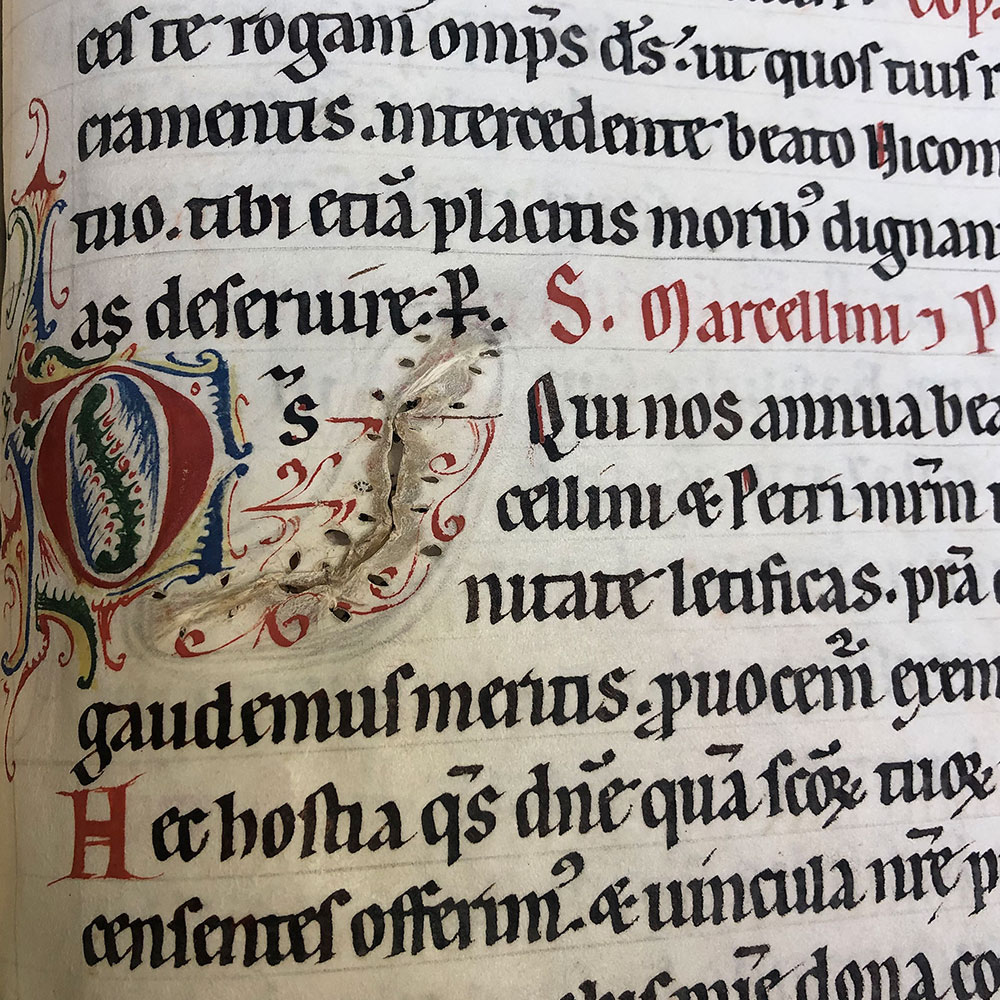 ceſ te rogam̄ omp̄s d̄s. ut quoſ tuiſ
cramentis. intercedente beato Nicom
tuo. tibi etiā placitis moribꝰ dignan
as deſeruire. P.
S. Marcellini ⁊ P
D s̄ Qui nos annua bea
cellini & Petri mr̄m
nitate letificas. prā
gaudemuſ meritis. ꝓuocem̃
exem
H ec hostia qs̄ dn̄e quā ſcōꝝ tuoꝝ
cenſenteſ offerimꝰ. & uincula nr̄e p
dona co